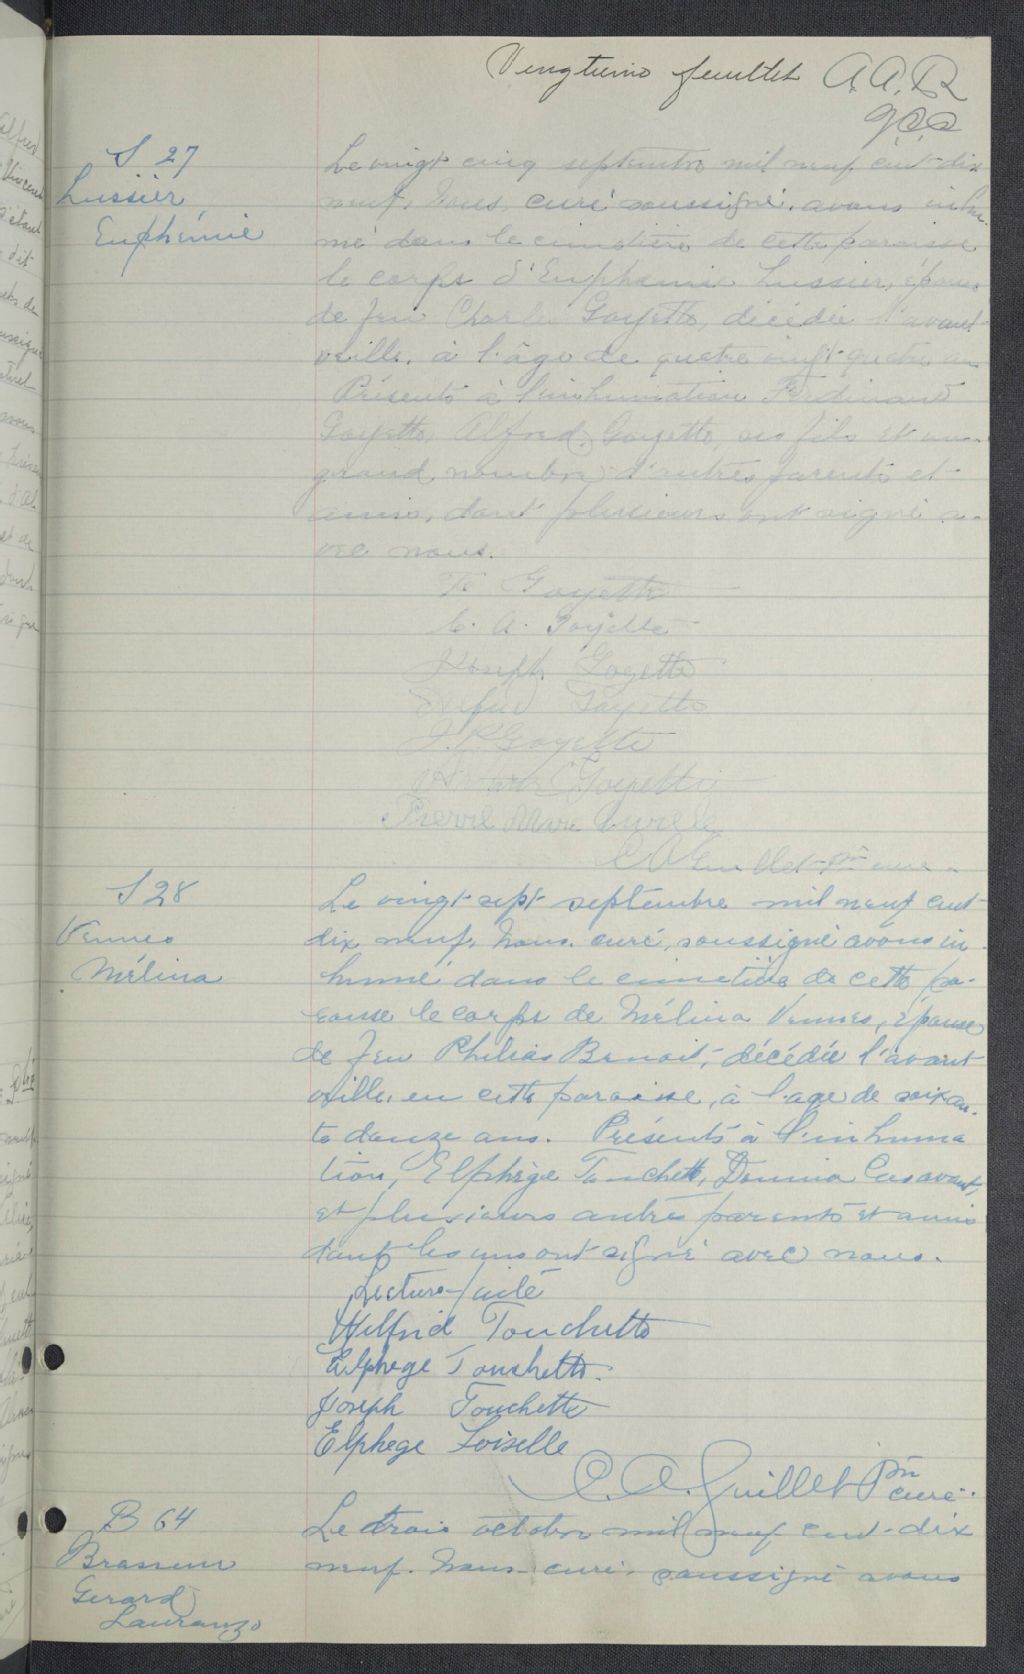 Vingtième feuillet A.A.R
S 27
Lussier
Euphémie
Le vingt cinq septembre mil neuf cent dix
neuf, Nous, curé soussigné, avons inhu-
mé dans le cimetière de cette paroisse
le corps d'Euphémie Lussier, épouse
de feu Charles Goyette, décédée l'avant-
veille, à l'âge de quatre vingt quatre ans
Présents à l'inhumation Ferdinand
Goyette, Alfred Goyette, ses fils et un
grand nombre d'autres parents et
amis, dont plusieurs ont signé a-
vec nous.
Goyette
C. A. Goyette
Joseph Goyette
Alfred Goyette
J. R Goyette
Arthur Goyette
Pierre Marc Aurele
C A Guillet Ptre curé
S 28
Vennes
Mélina
Le vingt sept septembre mil neuf cent
dix neuf, Nous, curé, soussigné avons in-
humé dans le cimetière de cette pa-
roisse le corps de Mélina Vennes, épouse
de feu Philias Benoit, décédée l'avant
veille, en cette paroisse, à l'age de soixan-
te douze ans. Présents à l'inhuma
tion, Elphège Touchette, Donina Casavant,
et plusieurs autres parents et amis
dont les uns ont signé avec nous.
Lecture faite
Wilfrid Touchette
Elphege Touchette.
Joseph Touchette
Elphege Loiselle
C. A. Guillet Ptre curé.
B 64
Brasseur
Gerard
Lauranzo
Le trois octobre mil neuf cent-dix
neuf. Nous curé, soussigné avons